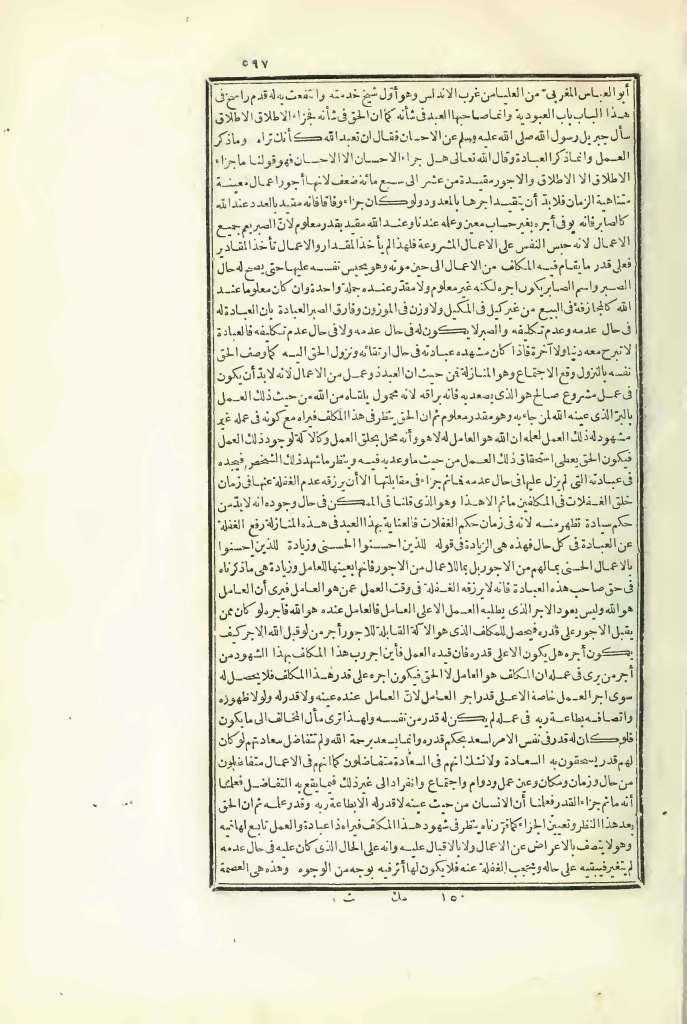 ٥٩٧
أبو العباس المغربي من العليا من غرب الاندلس وهو أول شيخ خدمته وانتفعت به له قدم راسخ فى
هذا الباب باب العبودية وانما صاحبها العبد فى شأنه كما ان الحق فى شأنه فجزاء الاطلاق الاطلاق
سأل جبريل رسول الله صلى الله عليه وسلم عن الاحسان فقال ان تعبد الله كأنك تراه وما ذكر
العمل وانما ذكر العبادة وقال الله تعالى هل جزاء الاحسان الا الاحسان فهو قولنا ما جزاء
الاطلاق الا الاطلاق والاجور مقيدة من عشر الى سبع مائة ضعف لانها أجور اعمال معينة
متناهية الزمان فلا بد أن يتقيد اجرها بالمعدود ولو كان جزاء وفاقا فانه مقيد بالعدد عند الله
كالصابر فانه يوفى أجره بغير حساب معين وعمله عندنا وعند الله مقيد بقدر معلوم لان الصبر يعم جميع
الاعمال لانه حبس النفس على الاعمال المشروعة فلهذا لم يأخذ المقدار والاعمال تأخذ المقادير
فعلى قدر ما يقام فيه المكلف من الاعمال الى حين موته وهو يحبس نفسه عليها حتى يصح له حال
الصبر واسم الصابر يكون اجره لكنه غير معلوم ولا مقدر عنده جملة واحدة وان كان معلوما عند
الله كالمجازفة فى البيع من غير كيل فى المكيل ولا وزن فى الموزون وفارق الصبر العبادة بان العبادة له
فى حال عدمه وعدم تكليفه والصبر لا يكون له فى حال عدمه ولا فى حال عدم تكليفه فالعبادة
لا تبرح معه دنيا ولا آخرة فاذا كان مشهده عبادته فى حال ارتقائه ونزول الحق اليه كما وصف الحق
نفسه بالنزول وقع الاجتماع وهو المنازلة فمن حيث ان العبد ذو عمل من الاعمال لانه لا بد أن يكون
فى عمل مشروع صالح هو الذى يصعد به فانه براقه لانه محمول يلقاه من الله من حيث ذلك العمل
بالبر الذى عينه الله لمن جاء به وهو مقدر معلوم ثم ان الحق ينظر فى هذا المكلف فيراه مع كونه فى عمله غير
مشهود له ذلك العمل لعلمه ان الله هو العامل له لا هو وأنه محل بخلق العمل وكالآلة لوجود ذلك العمل
فيكون الحق يعطى استحقاق ذلك العمل من حيث ما وعد به فيه وينظر ما شهد ذلك الشخص فيجده
فى عبادته التى لم يزل عليها فى حال عدمه فما ثم جزاء فى مقابلتها الا أن يرزقه عدم الغفلة عنها فى زمان
خلق الغفلات فى المكلفين ما ثم الا هذا وهو الذى قلنا فى الممكن فى حال وجوده انه لا بد من
حكم سادة تظهر منه لانه فى زمان حكم الغفلات فالعناية بهذا العبد فى هذه المنازلة رفع الغفلة
عن العبادة فى كل حال فهذه هى الزيادة فى قوله للذين احسنوا الحسنى وزيادة للذين احسنوا
بالاعمال الحسنى بما لهم من الاجور بل بما للاعمال من الاجور فانها بعينها للعامل وزيادة هى ما ذكرناه
فى حق صاحب هذه العبادة فانه لا يرزقه الغفلة فى وقت العمل عمن هو العامل فيرى أن العامل
هو الله وليس يعود الاجر الذى يطلبه العمل الا على العامل فالعامل عنده هو الله فاجره لو كان ممن
يقبل الاجور على قدره فيحصل للمكلف الذى هو الآلة القابلة للاجور أجر من لو قبل الله الاجر كيف
يكون أجره هل يكون الا على قدره فان قيده العمل فأين اجر رب هذا المكلف بهذا الشهود من
أجر من يرى فى عمله ان المكلف هو العامل لا الحق فيكون اجره على قدر هذا المكلف فلا يحصل له
سوى اجر العمل خاصة الا على قدر اجر العامل لان العامل عنده عينه ولا قدر له ولولا ظهوره
واتصافه بطاعة ربه فى عمله لم يكن له قدر من نفسه ولهذا ترى مآل المخالف الى ما يكون
فلو كان له قدر فى نفس الامر لسعد بحكم قدره وانما يسعد برحمة الله ولم تتفاضل سعادتهم لو كان
لهم قدر يستحقون به السعادة ولا نشك انهم فى السعادة متفاضلون كما انهم فى الاعمال متفاضلون
من حال وزمان ومكان وعين عمل ودوام واجتماع وانفراد الى غير ذلك فيما يقع به التفاضل فعلمنا
أنه ما ثم جزاء القدر فعلمنا أن الانسان من حيث عينه لا قدر له الا بطاعة ربه وقدر عمله ثم ان الحق
بعد هذا النظر وتعيين الجزاء كما قررناه ينظر فى شهود هذا المكلف فيراه ذا عبادة والعمل تابع لها فيه
وهو لا يتصف بالاعراض عن الاعمال ولا بالاقبال عليه وانه على الحال الذى كان عليه فى حال عدمه
لم يتغير فيبقيه على حاله ويحجب الغفلة عنه فلا يكون لها أثر فيه بوجه من الوجوه وهذه هى العصمة
١٥٠ مك ث